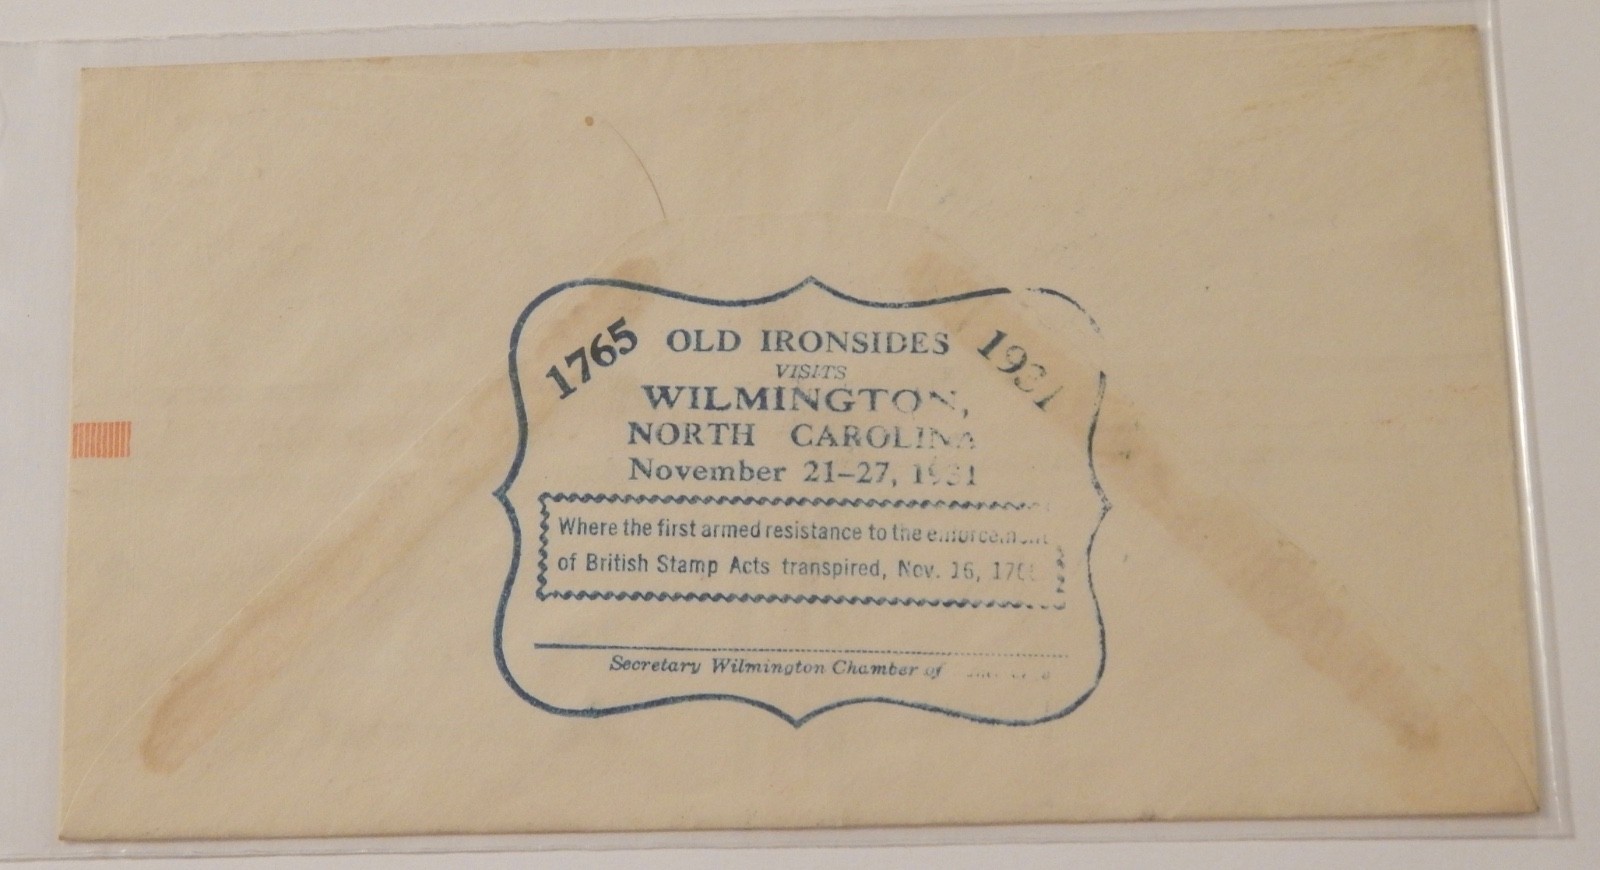 1765 OLD IRONSIDES 1931
VISITS
WILMINGTON,
NORTH CAROLINA
November 21–27, 1931
Where the first armed resistance to the enforcement
of British Stamp Acts transpired, Nov. 16, 176
Secretary Wilmington Chamber of